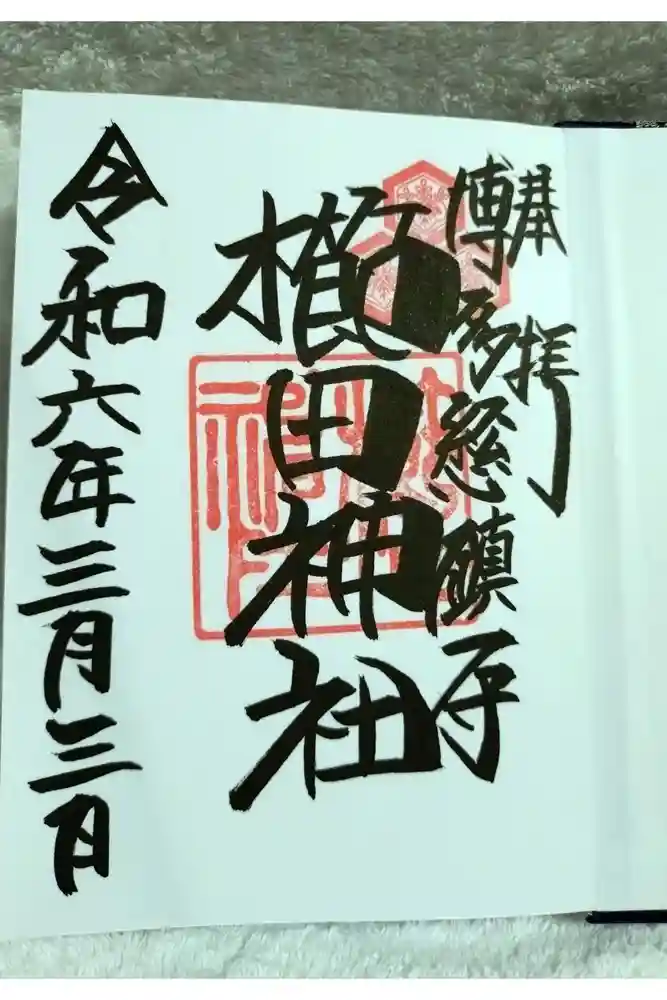 奉拝
博多総鎮守
櫛田神社
令和六年三月三月